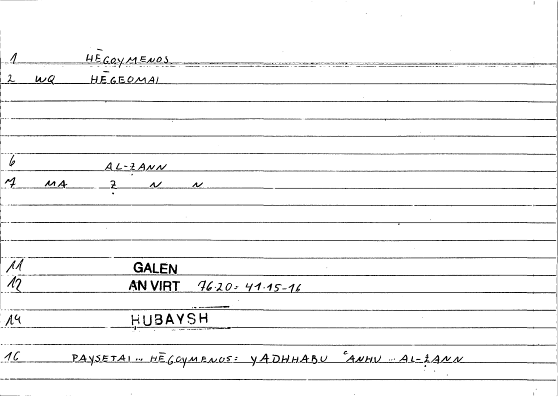 1 HĒGOYMENOS
2 WQ HĒGEOMAI
6 AL-ẒANN
7 MA Ẓ N N
11 GALEN
12 AN VIRT 76.20 = 41.15-16
14 ḤUBAYSH
16 PAYSETAI ... HĒGOYMENOS = YADHHABU ʿANHU ... AL-ẒANN